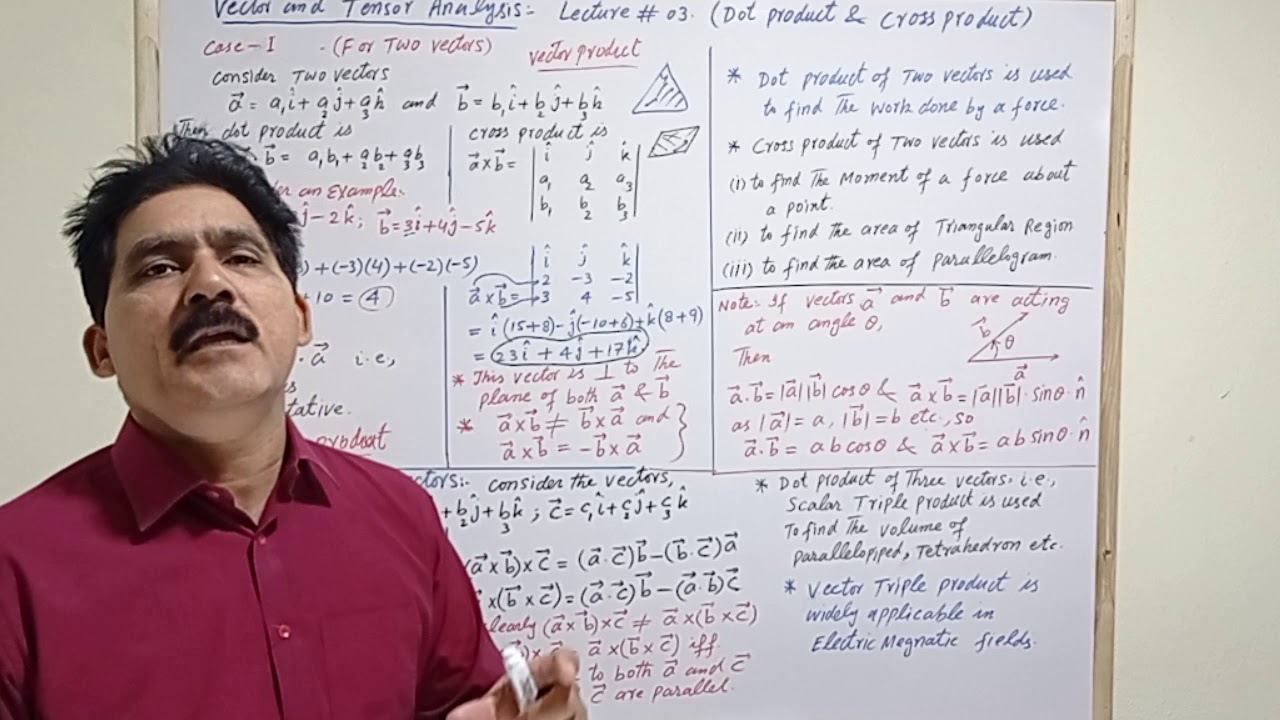 Vector and Tensor Analysis:- Lecture # 03. (Dot product & Cross product)
Case-I - (For Two vectors)
vector product
consider Two vectors
a⃗ = a₁î + a₂ĵ + a₃k̂ and b⃗ = b₁î + b₂ĵ + b₃k̂
Then dot product is
b⃗ = a₁b₁ + a₂b₂ + a₃b₃
an Example:
ĵ - 2k̂ ; b⃗ = 3î + 4ĵ - 5k̂
) + (-3)(4) + (-2)(-5)
+ 10 = 4
. a⃗ i.e,
tative.
product
cross product is
a⃗ x b⃗ =
î ĵ k̂
a₁ a₂ a₃
b₁ b₂ b₃
î ĵ k̂
a⃗ x b⃗ = 2 -3 -2
3 4 -5
= î(15+8) - ĵ(-10+6) + k̂(8+9)
= 23î + 4ĵ + 17k̂
* This vector is ⊥ to The
plane of both a⃗ & b⃗
* a⃗ x b⃗ ≠ b⃗ x a⃗ and
a⃗ x b⃗ = - b⃗ x a⃗
* Dot product of Two vectors is used
to find The work done by a force.
* Cross product of Two vectors is used
(i) to find The Moment of a force about
a point.
(ii) to find the area of Triangular Region
(iii) to find the area of parallelogram.
Note: If vectors a⃗ and b⃗ are acting
at an angle θ,
b⃗
θ
a⃗
Then
a⃗.b⃗ = |a⃗||b⃗| cosθ & a⃗ x b⃗ = |a⃗||b⃗|.sinθ.n̂
as |a⃗| = a, |b⃗| = b etc, so
a⃗.b⃗ = ab cosθ & a⃗ x b⃗ = ab sinθ.n̂
ctors:- consider the vectors,
+ b₂ĵ + b₃k̂ ; c⃗ = c₁î + c₂ĵ + c₃k̂
(a⃗ x b⃗) x c⃗ = (a⃗.c⃗)b⃗ - (b⃗.c⃗)a⃗
x (b⃗ x c⃗) = (a⃗.c⃗)b⃗ - (a⃗.b⃗)c⃗
learly (a⃗ x b⃗) x c⃗ ≠ a⃗ x (b⃗ x c⃗)
a⃗ x (b⃗ x c⃗) iff
to both a⃗ and c⃗
c⃗ are parallel.
* Dot product of Three vectors. i.e.,
Scalar Triple product is used
To find The volume of
parallelopiped, Tetrahedron etc.
* Vector Triple product is
widely applicable in
Electric Megnatic fields.